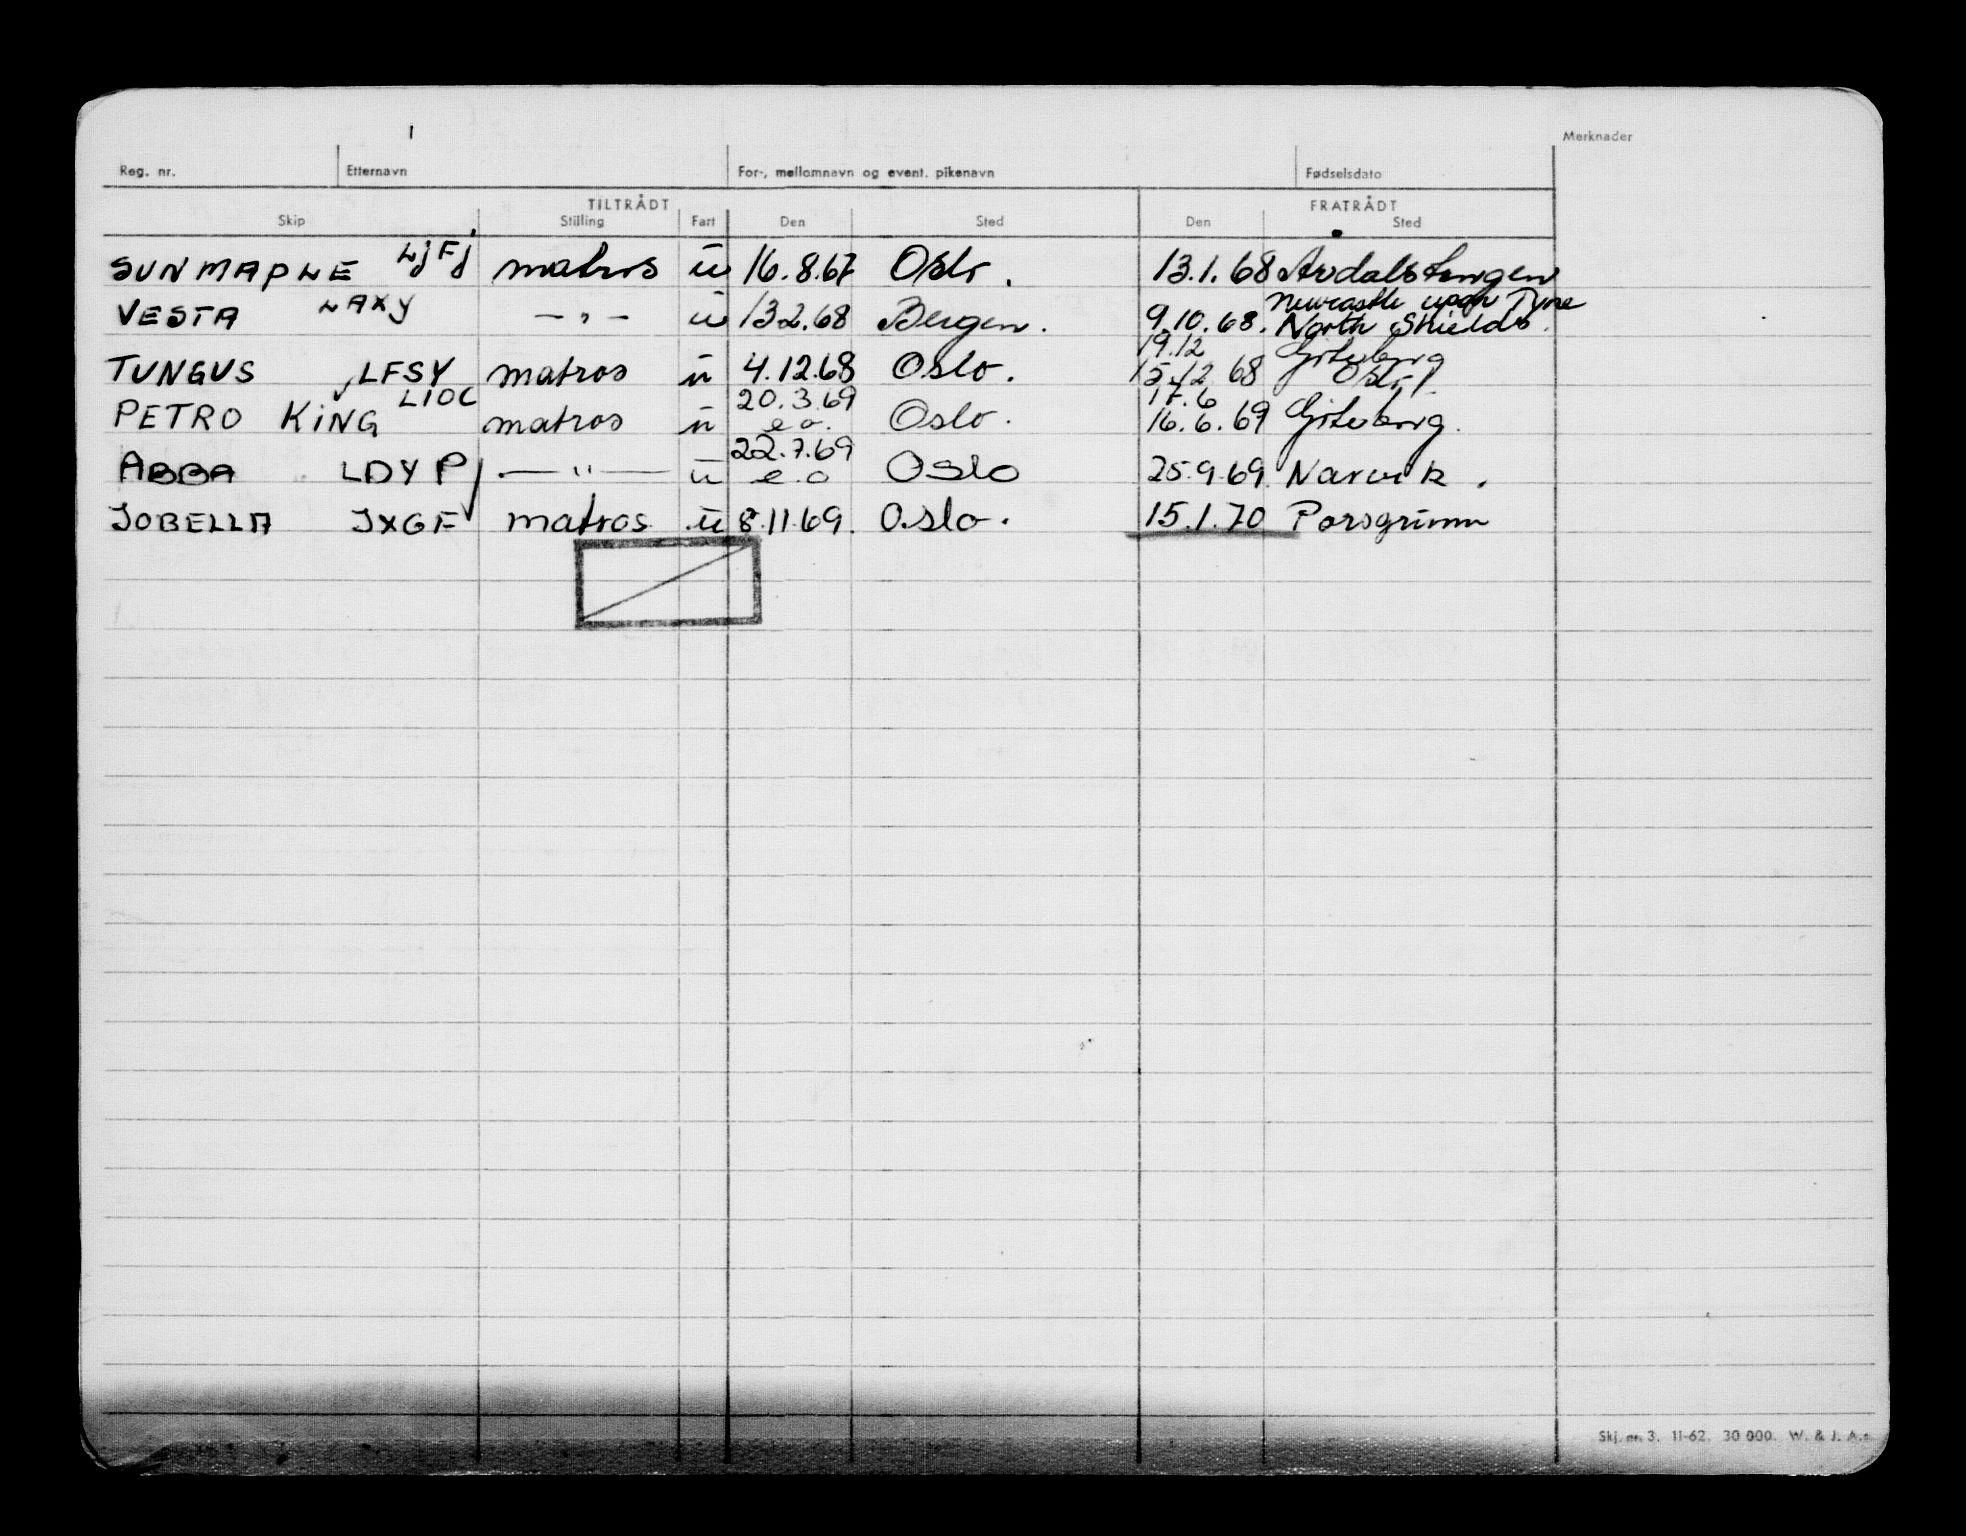 Merknader
Reg. nr. Etternavn For-, mellomnavn og event. pikenavn Fødselsdato
TILTRÅDT FRATRÅDT
Skip Stilling Fart Den Sted Den Sted
SUNMAPLE LJFJ matros u 16.8.67 Oslo. 13.1.68 Årdalstangen
VESTA LAXY —"— u 13.2.68 Bergen. 9.10.68. Newcastle upon Tyne North Shields.
TUNGUS LFSY matros u 4.12.68 Oslo. 19.12 15.12 68 Göteborg Oslo
PETRO KING LIOC matros u 20.3.69 e.o. Oslo. 17.6 16.6.69 Göteborg.
ABBA LDYP —"— u 22.7.69 e.o Oslo 25.9.69 Narvik.
JOBELLA JXGF matros u 8.11.69. Oslo. 15.1.70 Porsgrunn
Skj. nr. 3. 11-62. 30 000. W. & J. A.s